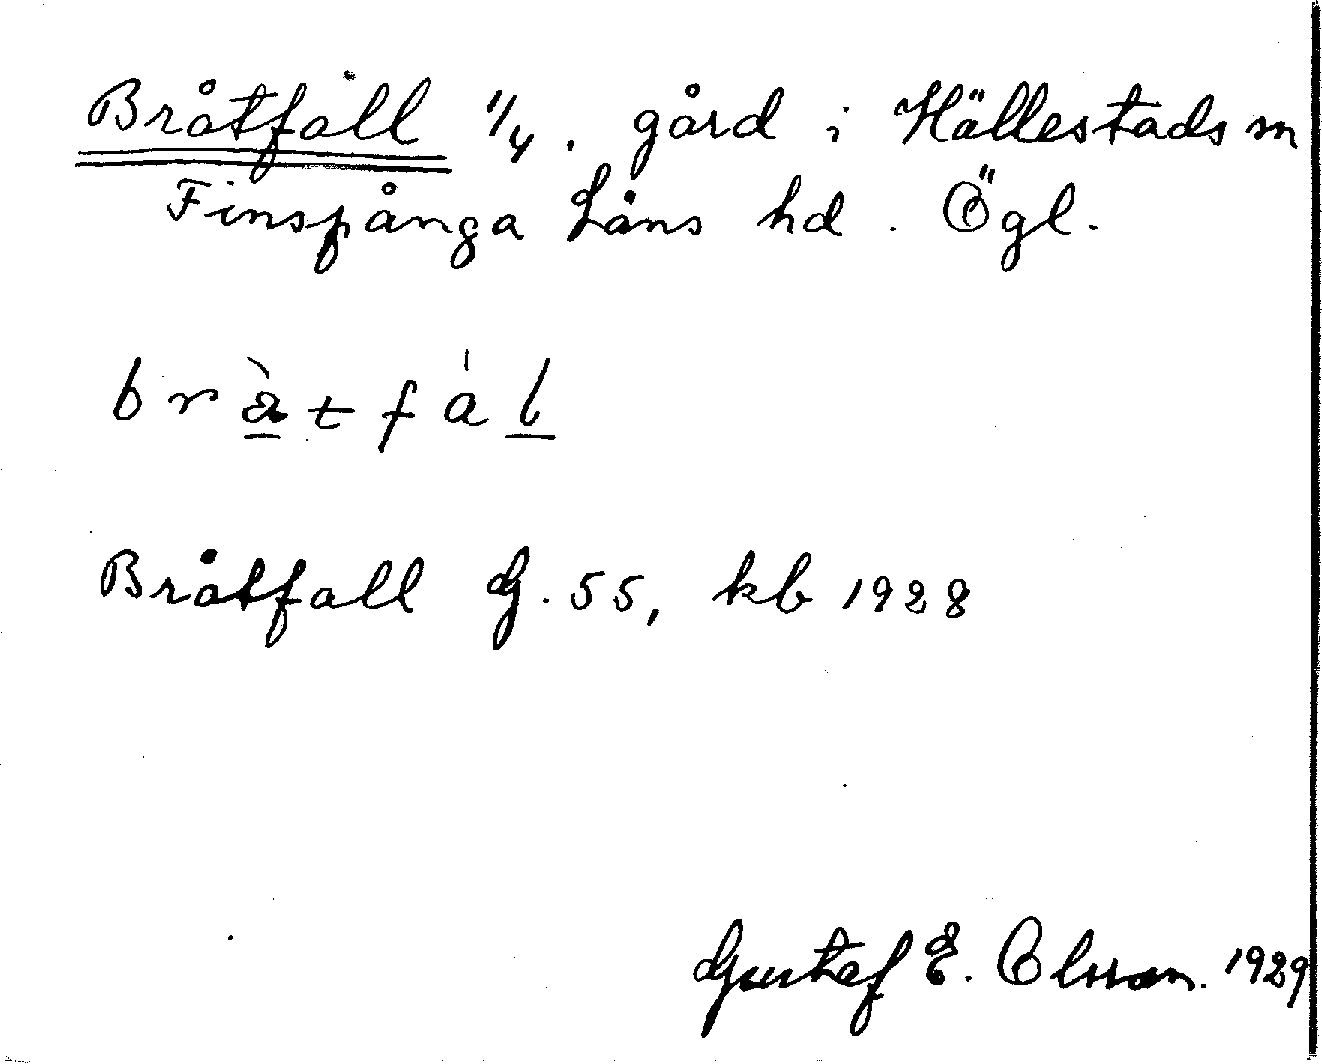 Bråtfall 1/4. gård i Hällestads sn
Finspånga Läns hd. Ögl.
bràtfál
Bråtfall G. 55, kb 1928
Gustaf E. Olsson. 1929